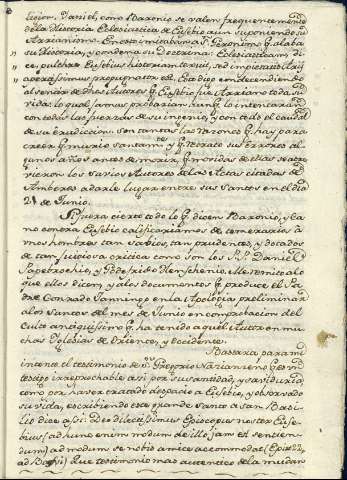 ligion. Daniel, como Baronio se valen frequentemente
de la Historia Eclesiastica de Eusebio aun suponiendo su
Arrianismo. En esto imitaban a S. Geronimo q. alaba
su Historia, y condena su Doctrina: Eclesiasticam, di-
ce, pulchre Eusebius historiam texuit, sed impietatis Arij
apertissimus propugnator est. Esto digo condescendiendo
al sentir de dhos Autores q. Eusebio fue Arriano toda su
vida: lo qual jamas probarian aunq. lo intentaran
con todas las fuerzas de su ingenio, y con todo el caudal
de su erudiccion. Son tantas las razones q. hay para
creer q. murio santamte. y q. retrato sus errores al-
gunos años antes de morir, q. movidas de ellas se atre-
vieron los savios Autores de las Actas citadas de
Amberes a darle lugar entre sus Santos en el dia
21 de Junio.
Si fuera cierto todo lo q. dicen Baronio, y Ca-
no contra Eusebio calificariamos de temerarios a
unos hombres tan sabios, tan prudentes, y dotados
de tan juiciosa critica como son los PP. Daniel
Papebrochio, y Godefrido Henschenio. Me remito a lo
que ellos dicen, y a los documentos q. produce el Pa-
dre Conrado Janningo en la Apologia preliminar
a los Santos del mes de Junio en comprobacion del
culto antiquisimo q. ha tenido aquel Autor en mu-
chas Iglesias de Oriente, y Occidente.
Bastará para mi
intento el testimonio de S. Gregorio Nazianzeno
testigo irreprochable asi por su santidad, y saviduria,
como por haver tratado despacio a Eusebio, y observado
su vida, escribiendo este grande Santo a San Basi-
lio dice assi: Deo dilectissimus Episcopus noster Euse-
bius (ad hunc enim modum de illo jam et sentien-
dum) ad modum se nobis amice accommodat (Epist. 22.
ad Basi.) Que testimonio mas autentico de la mudan-